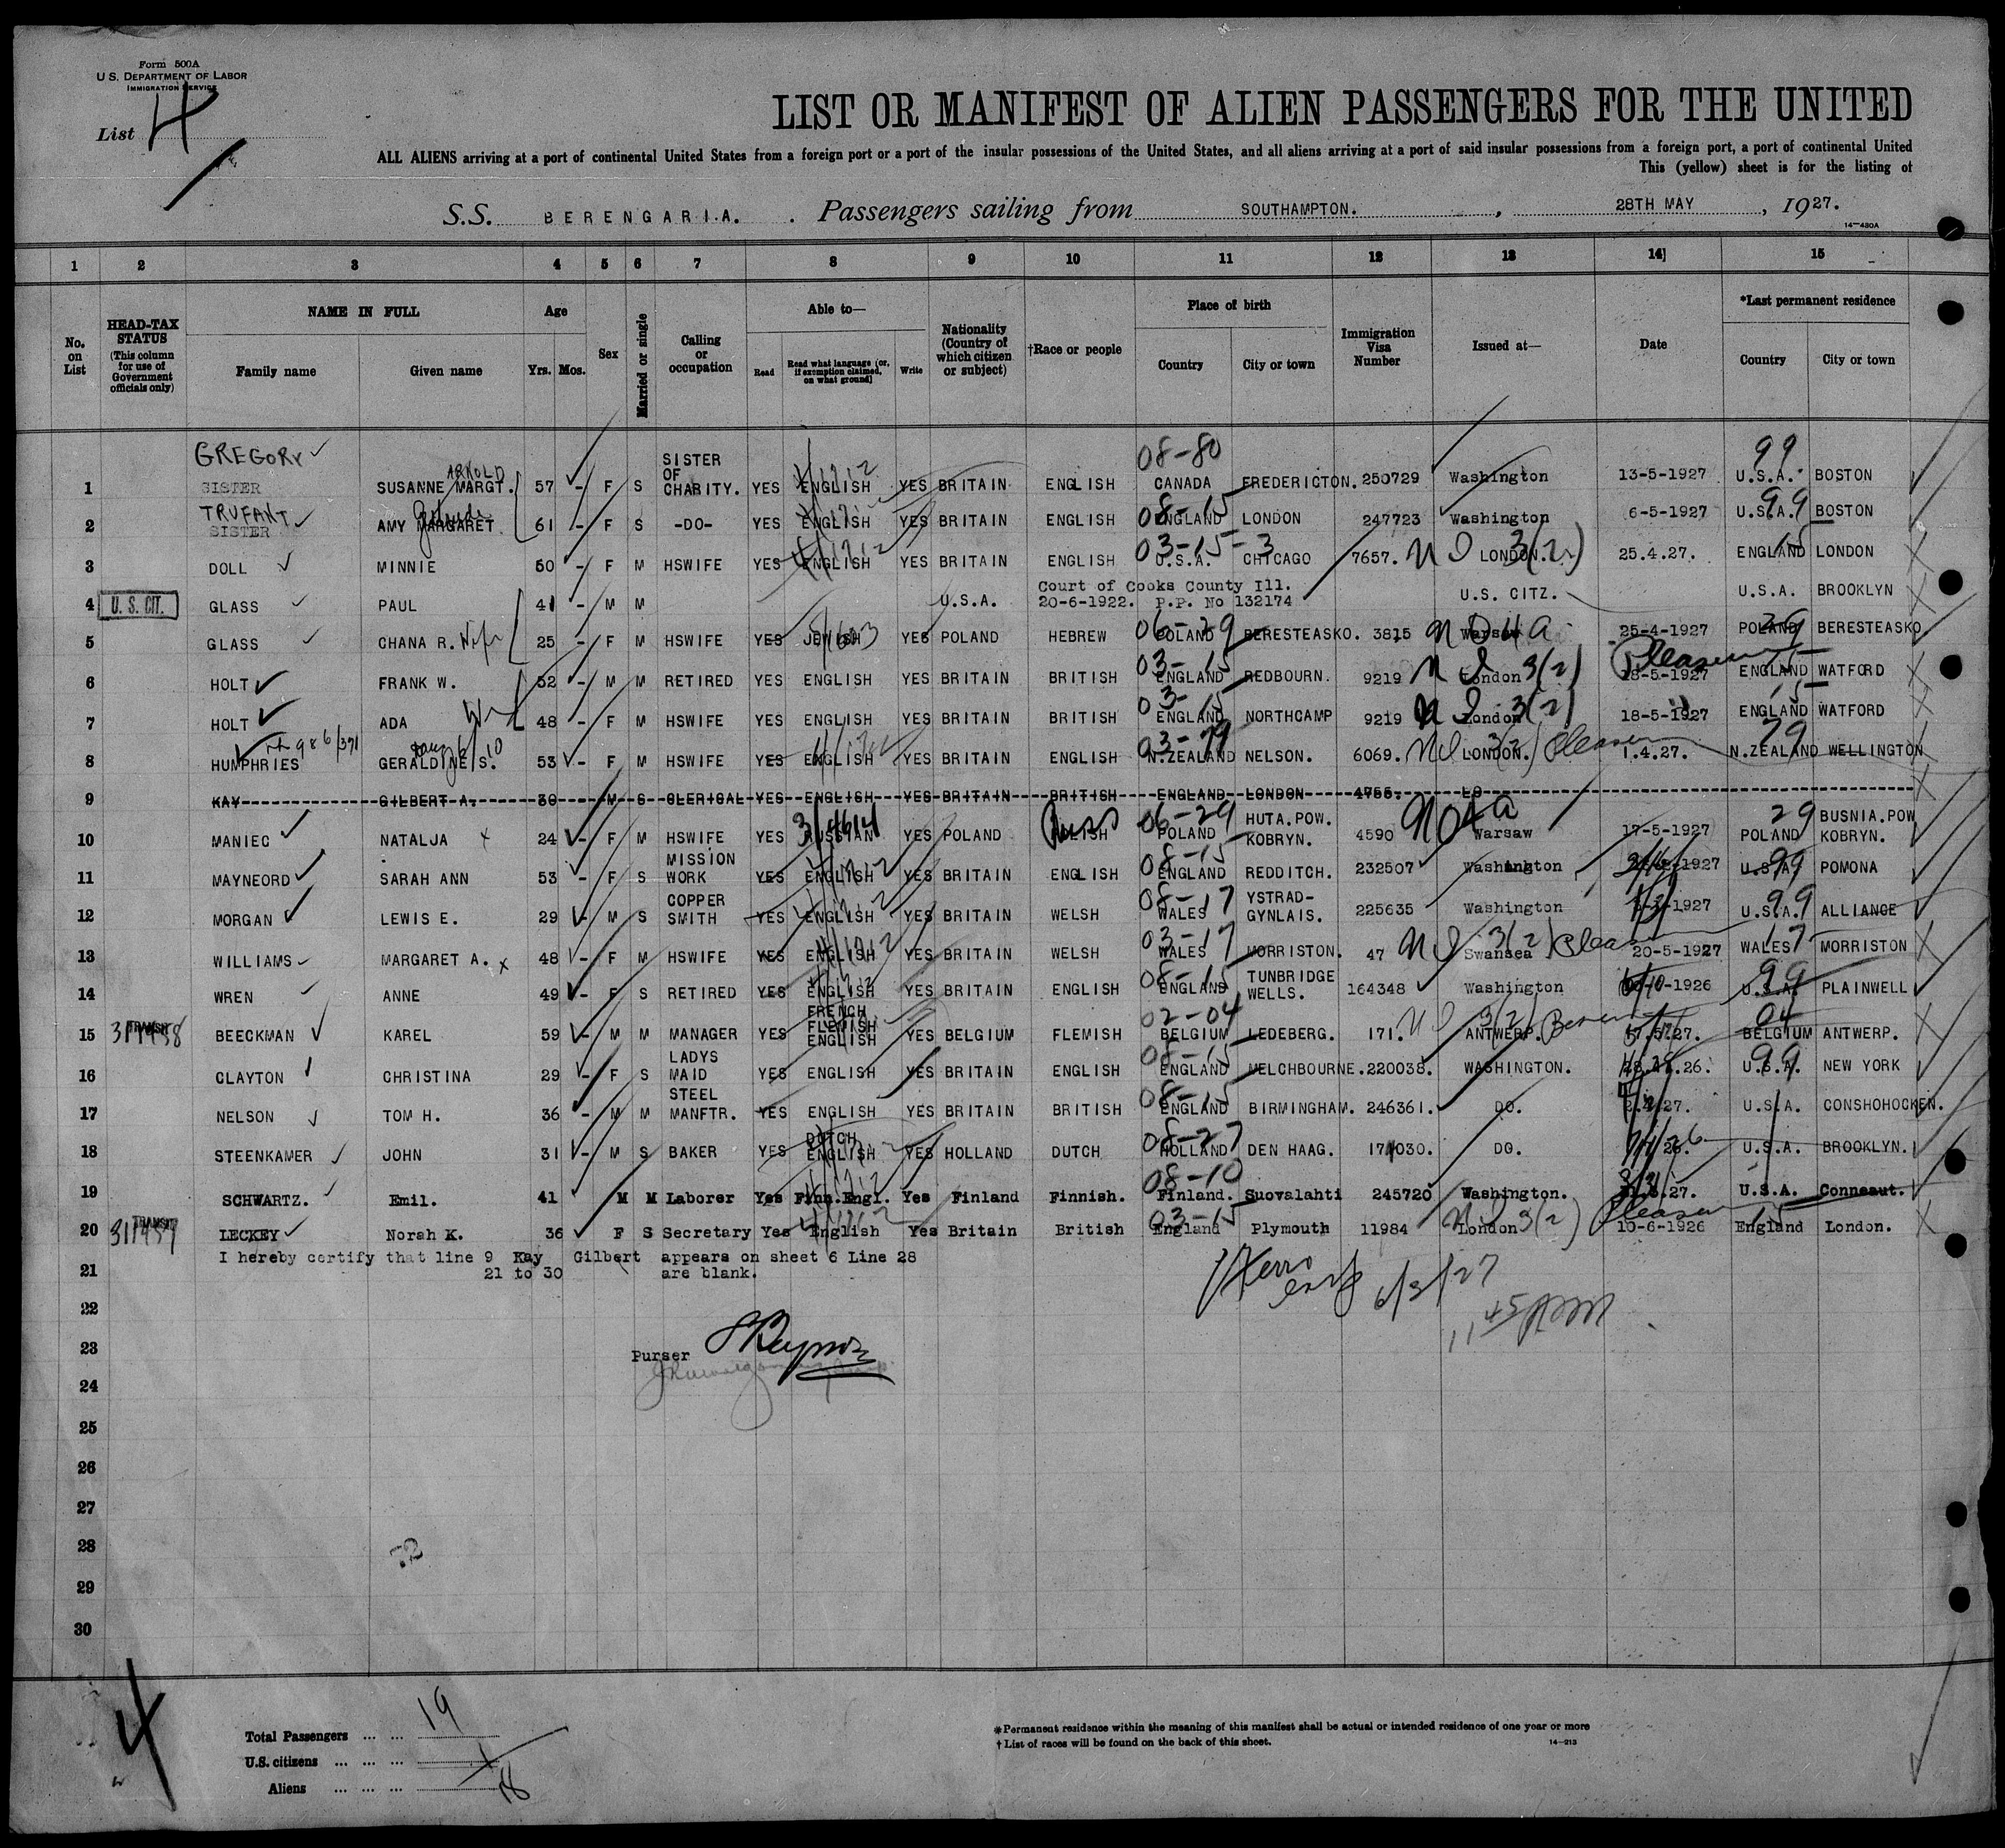 Form 500A
U.S. DEPARTMENT OF LABOR
IMMIGRATION SERVICE
List 4
LIST OR MANIFEST OF ALIEN PASSENGERS FOR THE UNITED
ALL ALIENS arriving at a port of continental United States from a foreign port or a port of the insular possessions of the United States, and all aliens arriving at a port of said insular possessions from a foreign port, a port of continental United
This (yellow) sheet is for the listing of
S.S. BERENGARIA. Passengers sailing from SOUTHAMPTON. , 28TH MAY , 1927.
14—430A
1 2 3 4 5 6 7 8 9 10 11 12 13 14 15
No. on List
HEAD-TAX STATUS (This column for use of Government officials only)
NAME IN FULL
Family name Given name
Age
Yrs. Mos.
Sex
Married or single
Calling or occupation
Able to—
Read Read what language (or, if exemption claimed, on what ground) Write
Nationality (Country of which citizen or subject)
†Race or people
Place of birth
Country City or town
Immigration Visa Number
Issued at—
Date
*Last permanent residence
Country City or town
GREGORY ARNOLD 08-80 99
1 SISTER SUSANNE MARGT. 57 - F S SISTER OF CHARITY. YES ENGLISH YES BRITAIN ENGLISH CANADA FREDERICTON. 250729 Washington 13-5-1927 U.S.A. BOSTON
TRUFANT 08-15 99
2 SISTER AMY MARGARET 61 - F S -DO- YES ENGLISH YES BRITAIN ENGLISH ENGLAND LONDON 247723 Washington 6-5-1927 U.S.A. BOSTON
03-15-3 3(2) 15
3 DOLL MINNIE 50 - F M HSWIFE YES ENGLISH YES BRITAIN ENGLISH U.S.A. CHICAGO 7657. LONDON. 25.4.27. ENGLAND LONDON
Court of Cooks County Ill.
4 U. S. CIT. GLASS PAUL 41 - M M U.S.A. 20-6-1922. P.P. No 132174 U.S. CITZ. U.S.A. BROOKLYN
5 GLASS CHANA R. Wife 25 - F M HSWIFE YES JEWISH YES POLAND HEBREW 06-29 POLAND BERESTEASKO. 3815 Warsaw 25-4-1927 POLAND 29 BERESTEASKO
6 HOLT FRANK W. 52 - M M RETIRED YES ENGLISH YES BRITAIN BRITISH 03-15 ENGLAND REDBOURN. 9219 London 3(2) Pleasure 18-5-1927 ENGLAND 15 WATFORD
7 HOLT ADA 48 - F M HSWIFE YES ENGLISH YES BRITAIN BRITISH 03-15 ENGLAND NORTHCAMP 9219 London 3(2) 18-5-1927 ENGLAND 15 WATFORD
8 HUMPHRIES GERALDINE S. 53 - F M HSWIFE YES ENGLISH YES BRITAIN ENGLISH 03-79 N.ZEALAND NELSON. 6069. LONDON. 3(2) Pleasure 1.4.27. N.ZEALAND 79 WELLINGTON
9 KAY GILBERT A. 30 M S CLERICAL YES ENGLISH YES BRITAIN BRITISH ENGLAND LONDON 4755. LO
10 MANIEC NATALJA 24 - F M HSWIFE YES RUSSIAN YES POLAND 06-29 POLAND HUTA. POW. KOBRYN. 4590 Warsaw 17-5-1927 POLAND 29 BUSNIA.POW KOBRYN.
11 MAYNEORD SARAH ANN 53 - F S MISSION WORK YES ENGLISH YES BRITAIN ENGLISH 08-15 ENGLAND REDDITCH. 232507 Washington 1927 U.S.A. 99 POMONA
12 MORGAN LEWIS E. 29 - M S COPPER SMITH YES ENGLISH YES BRITAIN WELSH 08-17 WALES YSTRAD-GYNLAIS. 225635 Washington 1927 U.S.A. 99 ALLIANCE
13 WILLIAMS MARGARET A. 48 - F M HSWIFE YES ENGLISH YES BRITAIN WELSH 03-17 WALES MORRISTON. 47 Swansea 3(2) Pleasure 20-5-1927 WALES 17 MORRISTON
14 WREN ANNE 49 - F S RETIRED YES ENGLISH YES BRITAIN ENGLISH 08-15 ENGLAND TUNBRIDGE WELLS. 164348 Washington 1926 U.S.A. 99 PLAINWELL
15 TRANSIT BEECKMAN KAREL 59 - M M MANAGER YES FRENCH FLEMISH ENGLISH YES BELGIUM FLEMISH 02-04 BELGIUM LEDEBERG. 171. ANTWERP. 3(2) BELGIUM 04 ANTWERP.
16 CLAYTON CHRISTINA 29 - F S LADYS MAID YES ENGLISH YES BRITAIN ENGLISH 08-15 ENGLAND MELCHBOURNE. 220038. WASHINGTON. U.S.A. 99 NEW YORK
17 NELSON TOM H. 36 - M M STEEL MANFTR. YES ENGLISH YES BRITAIN BRITISH 08-15 ENGLAND BIRMINGHAM. 246361. DO. U.S.A. CONSHOHOCKEN.
18 STEENKAMER JOHN 31 - M S BAKER YES DUTCH ENGLISH YES HOLLAND DUTCH 08-27 HOLLAND DEN HAAG. DO. U.S.A. BROOKLYN.
19 SCHWARTZ. Emil. 41 M M Laborer Yes Finn.Engl. Yes Finland Finnish. 08-10 Finland. Suovalahti 245720 Washington. U.S.A. Conneaut.
20 TRANSIT LECKEY Norah K. 36 F S Secretary Yes English Yes Britain British 03-15 England Plymouth 11984 London 3(2) Pleasure 10-6-1926 England 15 London.
I hereby certify that line 9 Kay Gilbert appears on sheet 6 Line 28
21 21 to 30 are blank.
6/3/27
22
23 Purser
24
25
26
27
28
29
30
4
Total Passengers ... ... 19
U.S. citizens ... ... ... 1
Aliens ... ... ... 18
*Permanent residence within the meaning of this manifest shall be actual or intended residence of one year or more
† List of races will be found on the back of this sheet.
14—213